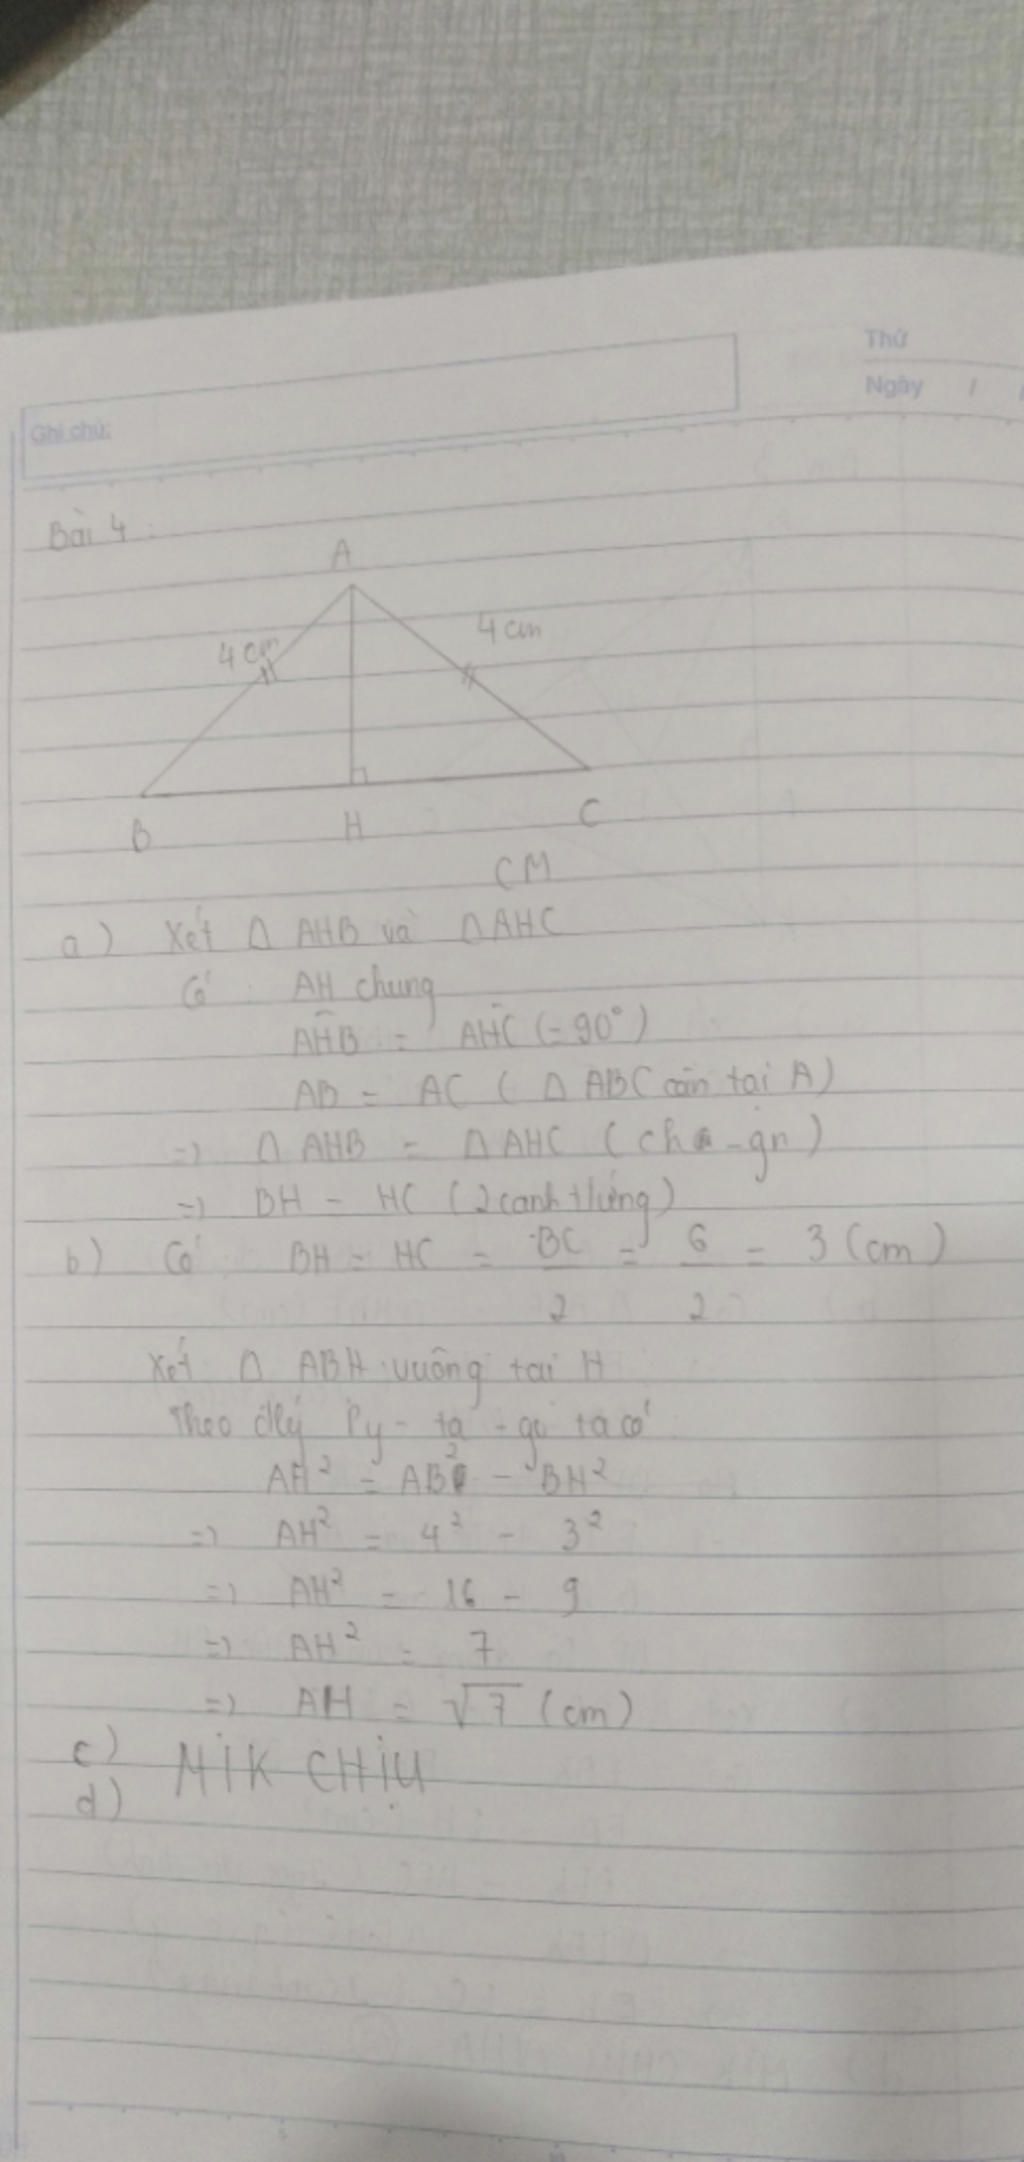 Thứ
Ngày / /
Ghi chú:
Bài 4:
A
4 cm
4 cm
B
H
C
CM
a) Xét Δ AHB và Δ AHC
Có: AH chung
AHB = AHC (= 90°)
AB = AC ( Δ ABC cân tại A)
=> Δ AHB = Δ AHC ( ch - gn )
=> BH = HC ( 2 cạnh tứng)
b) Có: BH = HC = BC/2 = 6/2 = 3 (cm)
Xét Δ ABH vuông tại H
Theo đlý Py - ta - go ta có
AH² = AB² - BH²
=> AH² = 4² - 3²
=> AH² = 16 - 9
=> AH² = 7
=> AH = √7 (cm)
c) MIK CHỊU
d)